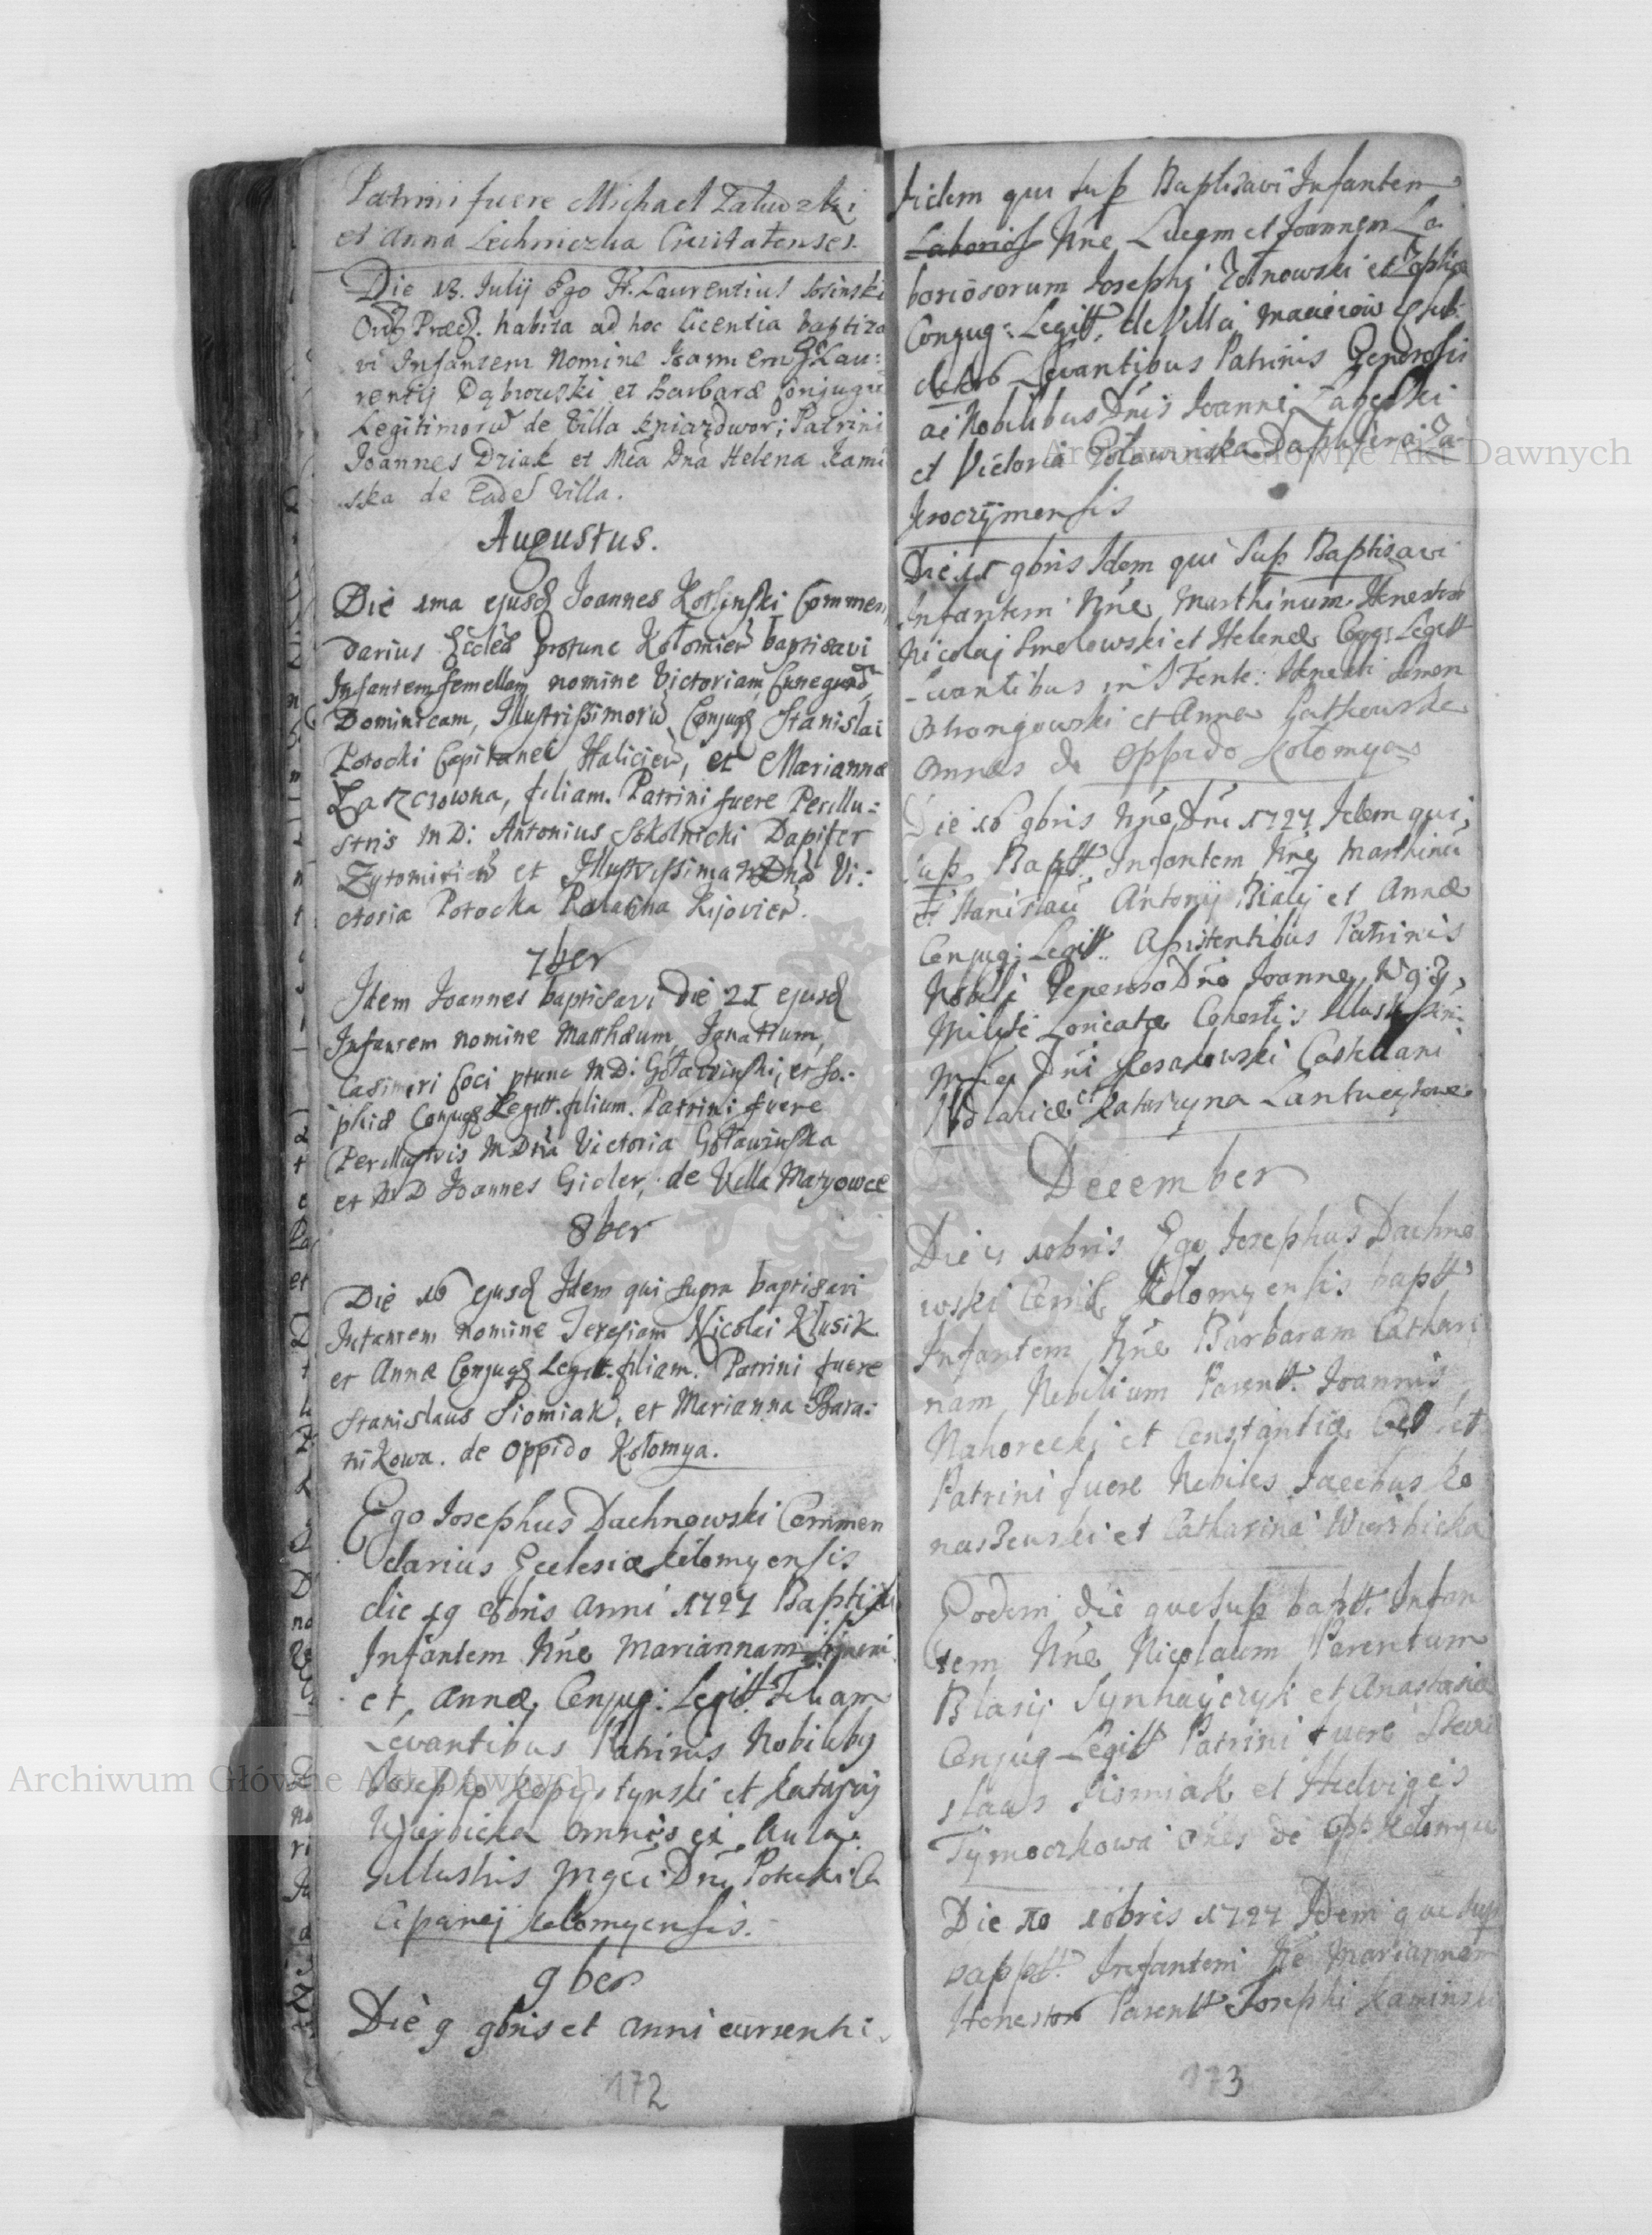 Patrini fuere Michael Załudzki
et Anna Lichniczka Civitatenses.
Die 13. Julij Ego Fr. Laurentius Sosinski
Ord Præd. habita ad hoc licentia baptiza
vi Infantem Nomine Joannem Lau:
rentij Dąbrowski et Barbaræ Conjugu
Legitimorū de Villa Kniazdwor; Patrini
Joannes Dziak et Mca Dna Helena Kami
ska de Eadē Villa.
Augustus.
Die 1ma ejusd Joannes Kotsinski Commen
darius Eccłea protunc Kołomień baptisavi
Infantem femellam nomine Victoriam, Cunegund
Dominicam, Illustrissimorū Conjugū Stanislai
Potocki Capitanei Halicień, et Mariannæ
Łaszczowna, filiam. Patrini fuere Perillu:
stris M D: Antonius Sokolnicki Dapifer
Zytomirień et Illustrissima M Dna Vi:
ctoria Potocka Palatina Kijovień.
7ber
Idem Joannes baptisavi Die 21 ejusd
Infantem nomine Matthæum, Ignatium,
Casimiri Loci ptunc M D: Goławinski, et So:
phiæ Conjugū Legitt. filium. Patrini fuere
Perillustris M Dna Victoria Goławinska
et M D Joannes Gidler, de Villa Matyowce
8ber
Die 16 ejusd Idem qui supra baptisavi
Infantem nomine Teresiam Nicolai Klusik
et Annæ Conjugū Legitt. filiam. Patrini fuere
Stanislaus Siomiak, et Marianna Bara:
nikowa. de Oppido Kołomya.
Ego Josephus Dachnowski Commen
darius Ecclesiæ Kolomyensis
die 19 8bris Anni 1727 Baptis
Infantem Nne Mariannam
et Annæ Conjug: Legitt Filiam
Levantibus Patrinis Nobilibg
Josepho Kopystynski et Katarzy
Wierbicka omnes ex Aula
Illustris Mgci Dni Potocki Ca
Capanej Kolomyensis.
9ber
Die 9 9bris et Anni currenti
172
Idem qui sup Baptisavi Infantem
Laborios Nne Lucam et Joannem La
boriosorum Josephi et Zophiæ
Conjug: Legitt. de Villa
Levantibus Patrinis Generosis
ac Nobilibus Dnis Joanne
et Victoria Goławinska Dapifera Za

Die 15 9bris Idem qui Sup Baptisavi
Infantem Nne Marthinum Honestor
Nicolaj Smolowski et Helenæ Cojug: Legitt
Levantibus in S Fonte: Honesti
et Anna Gutkowska
Omnes de Oppido Kolomya
Die 16 9bris Nne Dni 1727 Idem qui
Sup Baptt. Infantem Nne Marthinū
et Stanislaū Antonij Biały et Annæ
Conjug: Legitt. Assistentibus Patrinis
Nobili Generoso Dno Joanne
Milite Loricatæ Cohortis Illustrissi:
mi Dni Kossakowski Castellani
Podlachiæ et Katarzyna
December
Die 4 10bris Ego Josephus Dachno
wski Cemd. Kolomyensis baptt
Infantem Nne Barbaram Cathari
nam Nobilium Parentt. Joannis
Nahorecki et Constantiæ
Patrini fuere Nobiles Jacobus Ko
naszewski et Catharina Wierzbicka
Eodem die qui sup baptt. Infan
tem Nne Nicolaum Parentum
Blasij Synhayczyk et Anastasiæ
Conjug Legitt Patrini fuere Stani
slaus Siomiak et Hedvigis
Tymoczkowa Ones de Opp Kolomya
Die 10 10bris 1727 Idem qui sup
baptt. Infantem Ne Mariannam
Honestor Parentt Josephi Kaminski
173
Archiwum Główne Akt Dawnych
Archiwum Główne Akt Dawnych